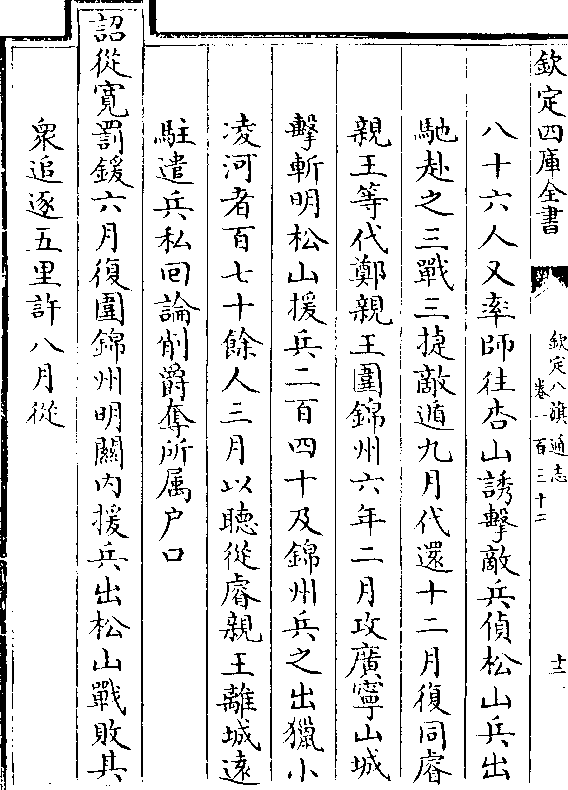 欽定四庫全書
欽定八旗通志
卷一百三十二
十二
八十六人又率師往杏山誘擊敵兵偵松山兵出
馳赴之三戰三捷敵遁九月代還十二月復同睿
親王等代鄭親王圍錦州六年二月攻廣寧山城
擊斬明松山援兵二百四十及錦州兵之出獵小
凌河者百七十餘人三月以聽從睿親王離城遠
駐遣兵私回論削爵奪所属户口
詔從寛罰鍰六月復圍錦州明關内援兵出松山戰敗其
衆追逐五里許八月從